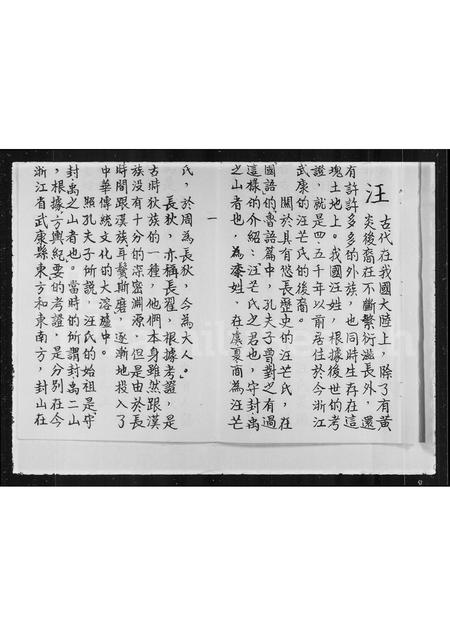 汪
古代在我國大陸上，除了有黃
炎後裔在不斷繁衍滋長外，還
有許許多多的外族，也同時生存在這
塊土地上。我國汪姓，根據後世的考
證，就是四、五千年以前居住於今浙江
武康的汪芒氏的後裔。
關於具有悠長歷史的汪芒氏，在
國語的魯語篇中，孔夫子曾對之有過
這樣的介紹：汪芒氏之君也，守封禺
之山者也，為漆姓，在虞夏商為汪芒
一
氏，於周為長狄，今為大人。
長狄，亦稱長翟，根據考證，是
古時狄族的一種，他們本身雖然跟漢
族沒有十分的深密淵源，但是由於長
時間跟漢族耳鬢廝磨，逐漸地投入了
中華傳統文化的大溶爐中。
照孔夫子所說，汪氏的始祖是守
封禺之山者也。當時的所謂封禺二山
，根據方輿紀要的考證，是分別在今
浙江省武康縣東方和東南方，封山在